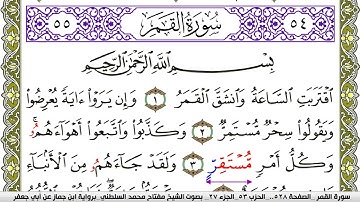 ٥٥ سُورَةُ القَمَرِ ٥٤
بِسْمِ اللَّهِ الرَّحْمَٰنِ الرَّحِيمِ
اقْتَرَبَتِ السَّاعَةُ وَانشَقَّ الْقَمَرُ ١ وَإِن يَرَوْا۟ ءَايَةً يُعْرِضُوا۟
وَيَقُولُوا۟ سِحْرٌ مُّسْتَمِرٌّ ٢ وَكَذَّبُوا۟ وَاتَّبَعُوا۟ أَهْوَآءَهُمُۥ
وَكُلُّ أَمْرٍ مُّسْتَقِرٍّ ٣ وَلَقَدْ جَآءَهُمُۥ مِنَ الْأَنۢبَآءِ
سورة القمر الصفحة ٥٢٨.. الحزب ٥٣.. الجزء ٢٧.. بصوت الشيخ مفتاح محمد السلطني برواية ابن جماز عن أبي جعفر